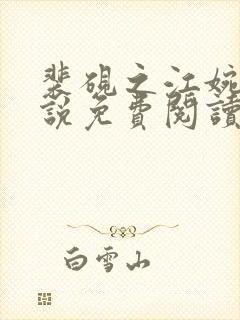 裴硯之江婉
說免費閱讀
白雪山